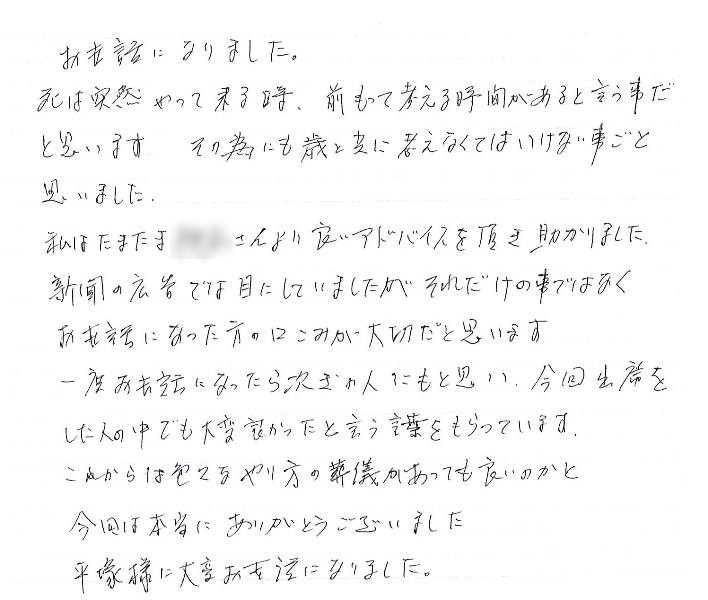 お世話になりました。
死は突然やって来る時、前もって考える時間があると言う事だ
と思います その為にも歳と共に考えなくてはいけない事ごと
思いました.
私はたまたま さんより良いアドバイスを頂き助かりました.
新聞の広告では目にしていましたがそれだけの事ではなく
お世話になった方の口こみが大切だと思います
一度お世話になったら次ぎの人にもと思い、今回出席を
した人の中でも大変良かったと言う言葉をもらっています.
これからは色々なやり方の葬儀があっても良いのかと
今回は本当にありがとうございました
平塚様に大変お世話になりました。